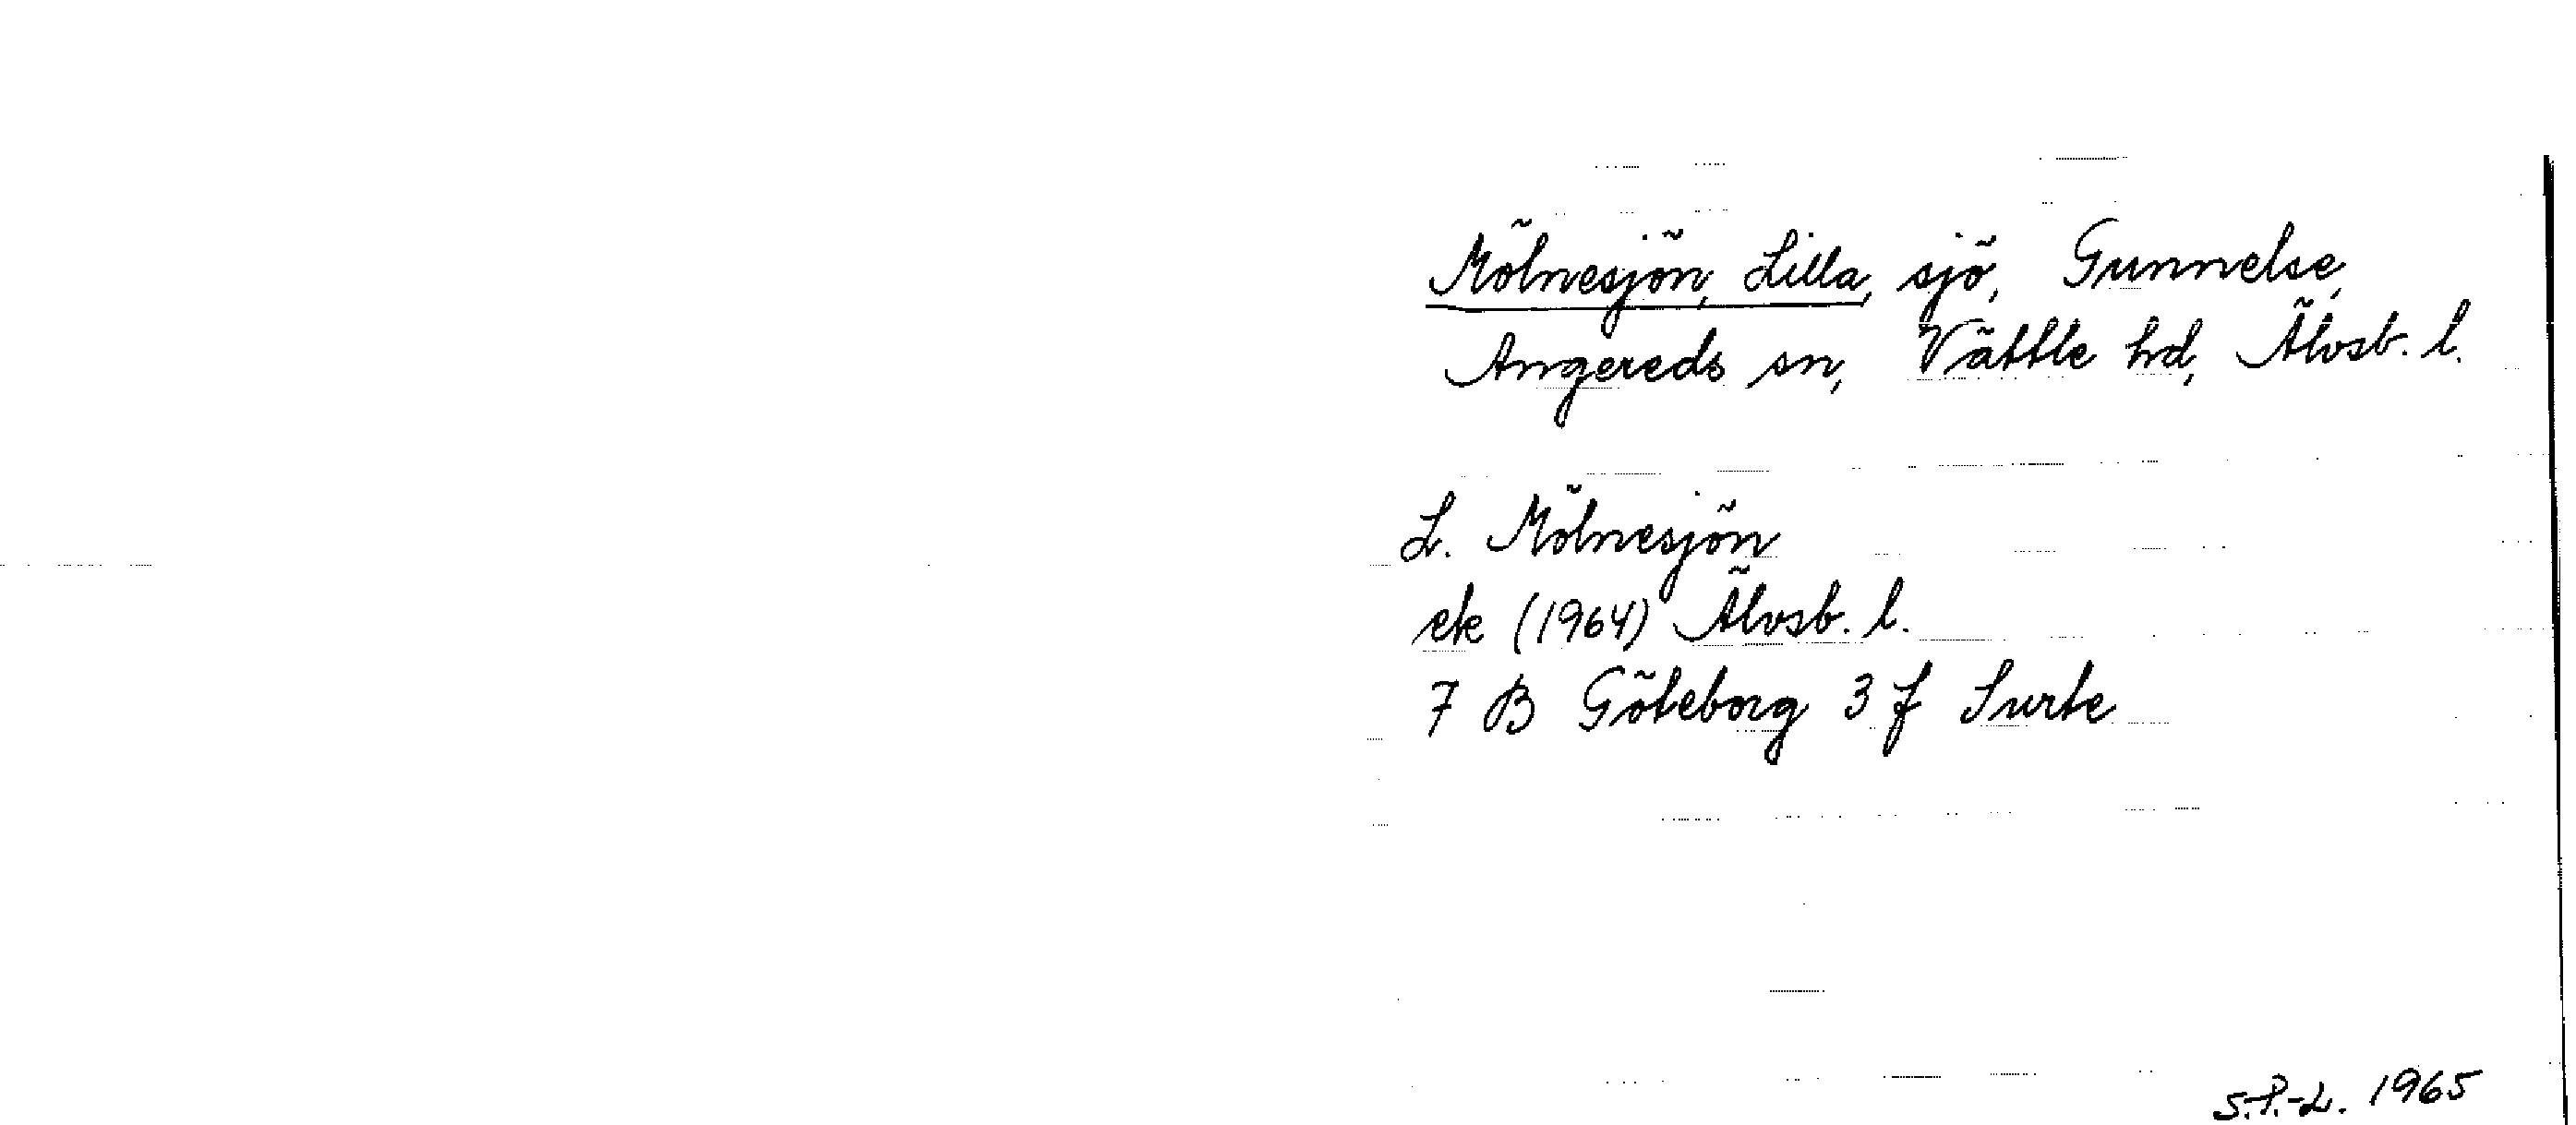 Mölnesjön, Lilla, sjö, Gunnelse,
Angereds sn, Vättle hd, Älvsb. l.
L. Mölnesjön
ek (1964) Älvsb. l.
7 B Göteborg 3 f Surte
S.P.-L. 1965